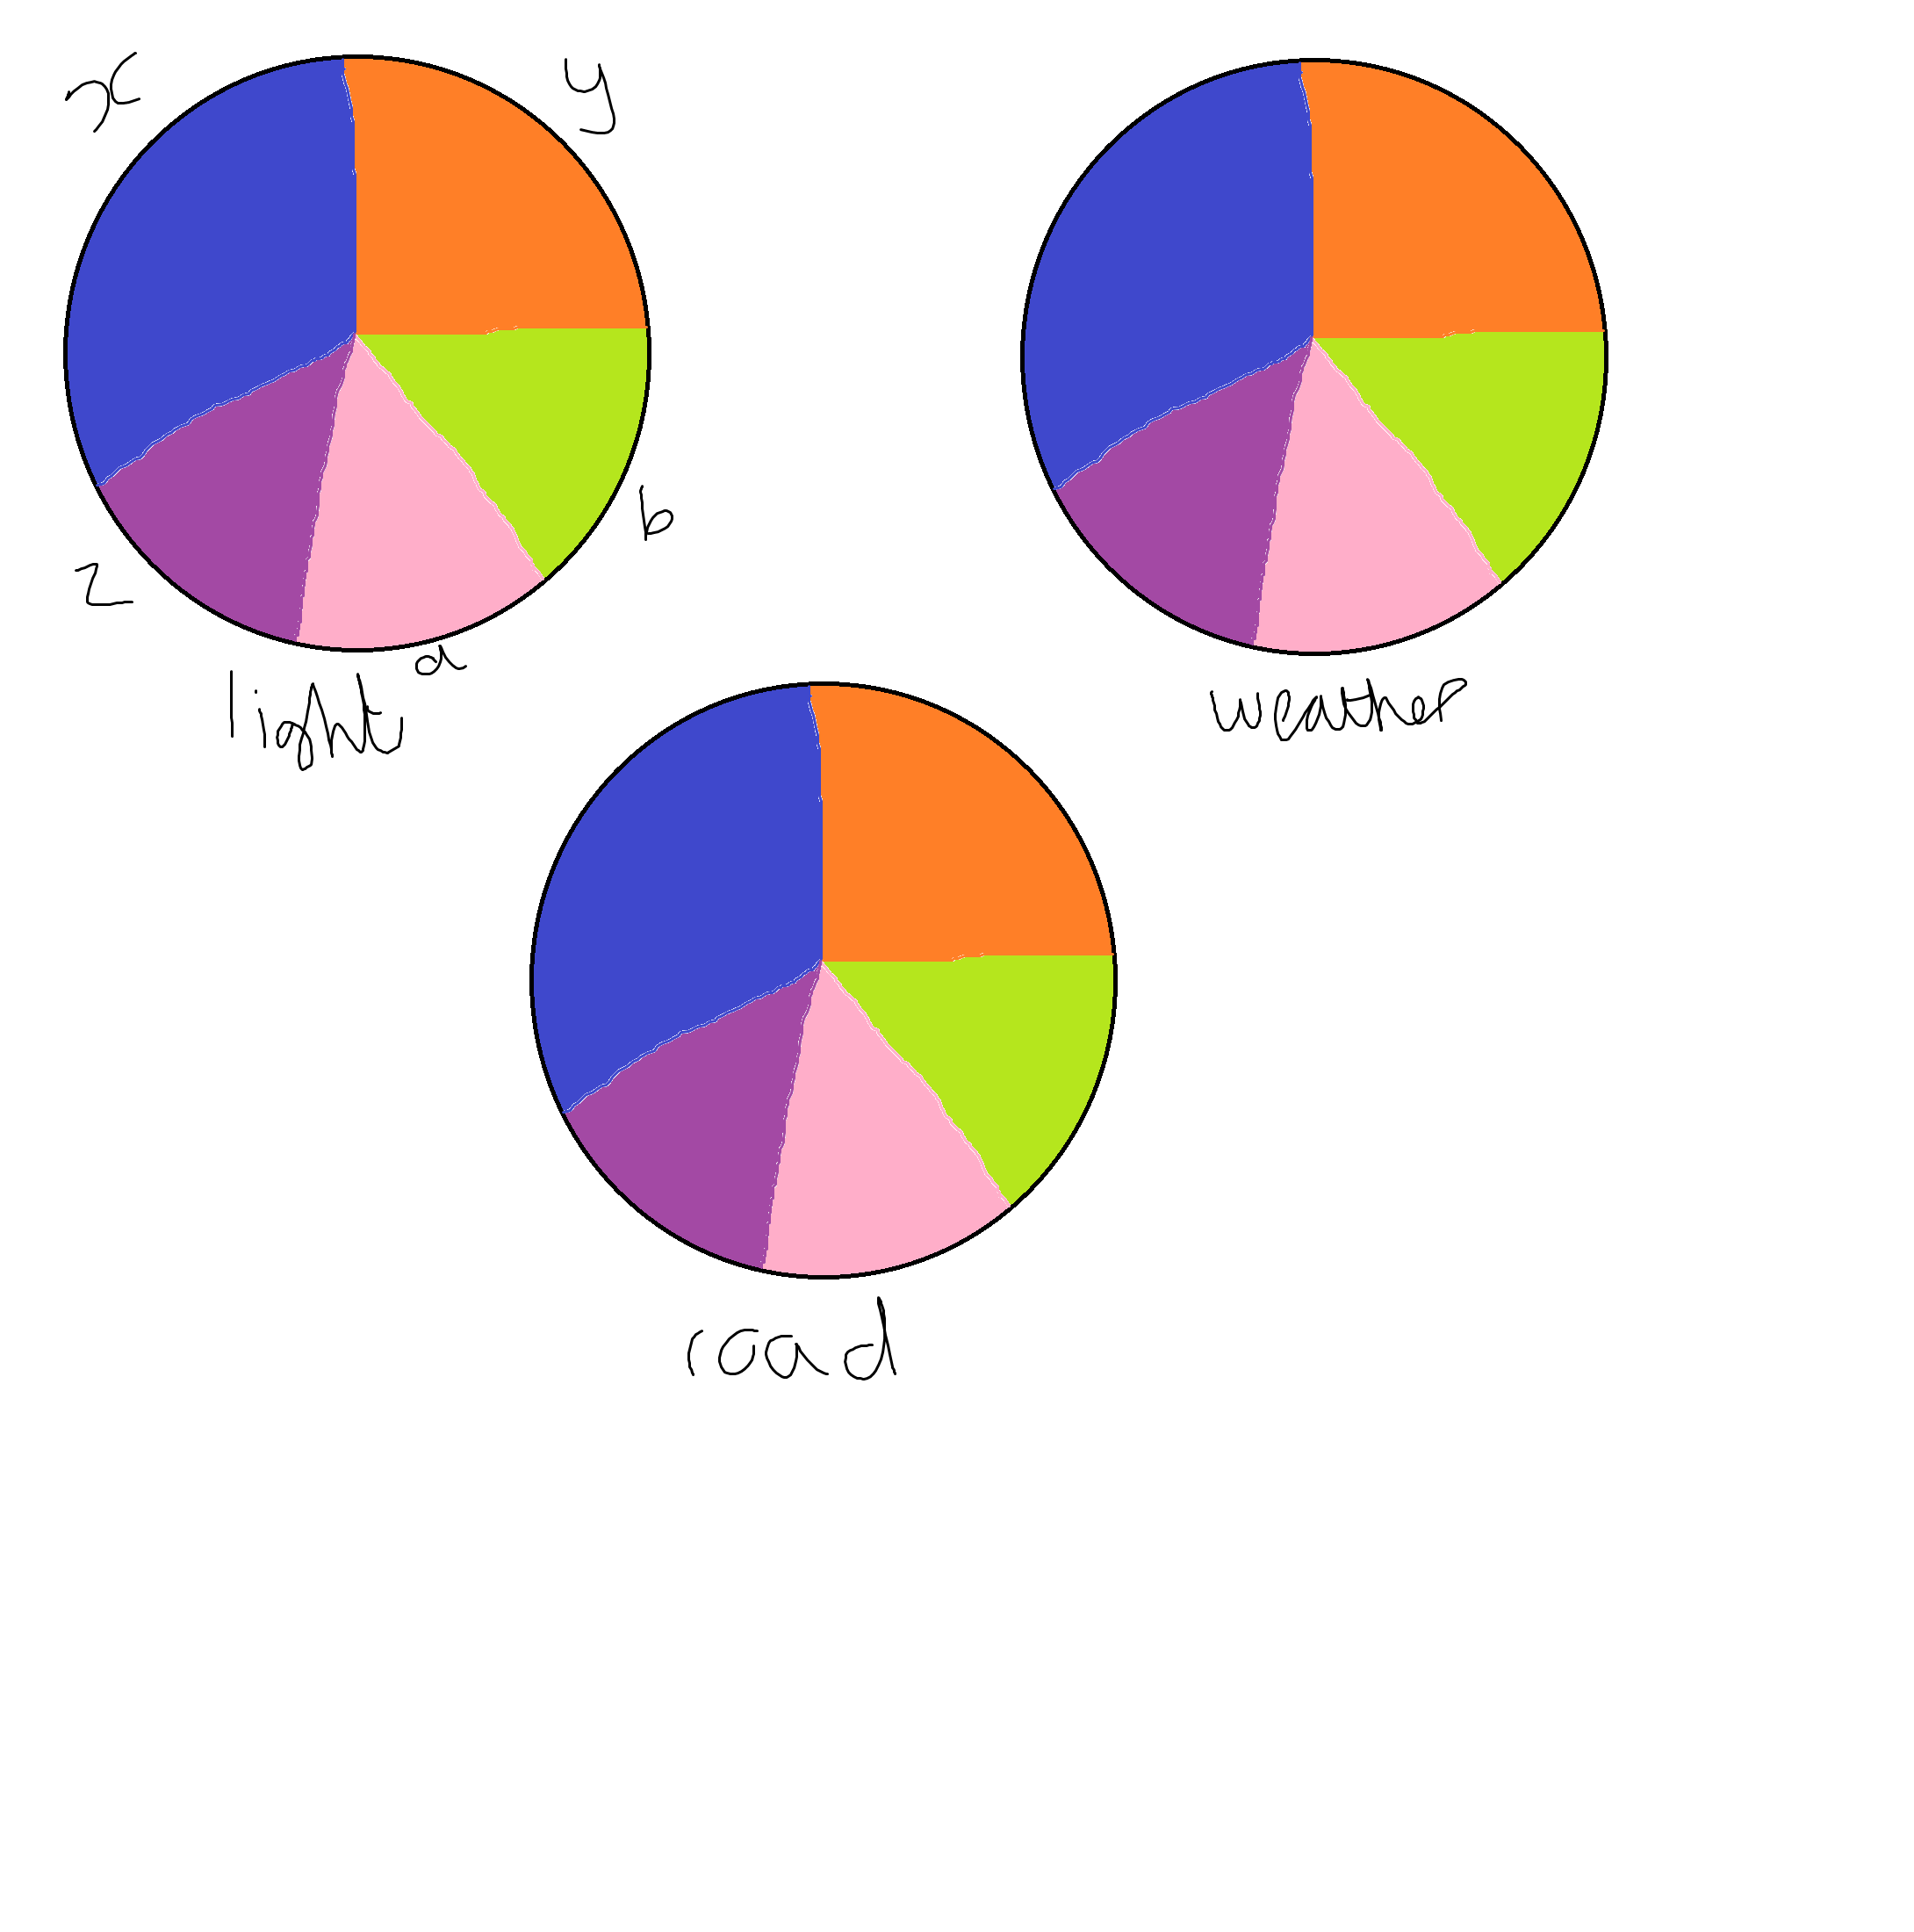 x
y
b
z
a
light
weather
road